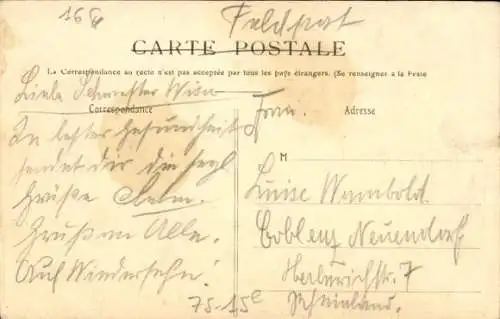 168
Feldpost
CARTE POSTALE
La Correspondance au recto n'est pas acceptée par tous les pays étrangers. (Se renseigner à la Poste
Liebe Schwester
Correspondance
In bester Gesundheit
sendet dir die
Grüße
Gruß an Alle.
Auf Wiedersehn!
75-15c
Frau.
Adresse
M
Luise Wambold
Coblenz Neuendorf
7
Rheinland.